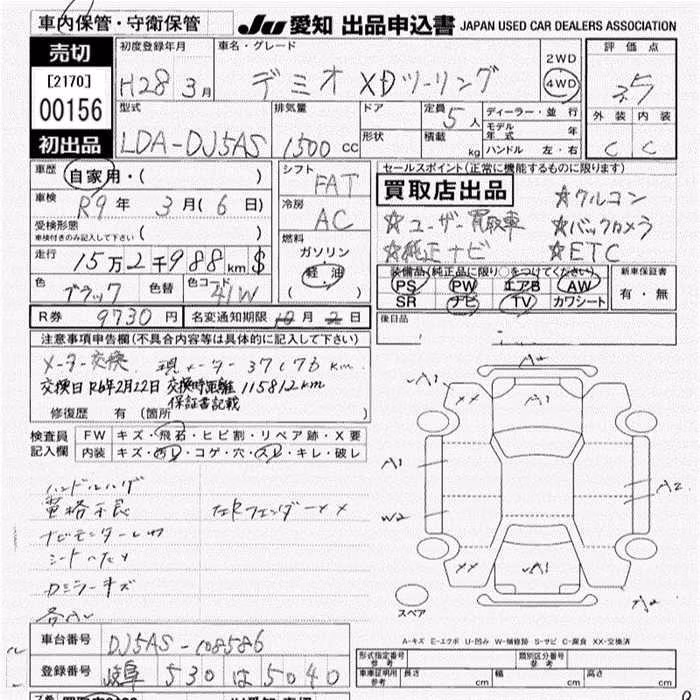 車内保管・守衛保管
JU 愛知 出品申込書 JAPAN USED CAR DEALERS ASSOCIATION
売切
[2170]
00156
初出品
初度登録年月
H28 3月
車名・グレード
デミオ XDツーリング
2WD
4WD
評価点
3.5
外装 内装
C C
型式
LDA-DJ5AS
排気量
1500 cc
ドア
形状
定員 5人
積載 kg
ディーラー・並行
モデル年式 年
ハンドル 左・右
車歴
自家用・( )
車検
R9年 3月(6日)
受検形態
車検付きのみ記入して下さい ( )
走行
15万2千988km $
色
ブラック
色替
色コード
41W
シフト
FAT
冷房
AC
燃料
ガソリン
・
軽油
( )
セールスポイント(正常に機能するものに限ります)
買取店出品
☆クルコン
☆ユーザー買取車
☆バックカメラ
☆純正ナビ
☆ETC
装備品(純正品に限り○をつけてください)
PS PW エアB AW
SR ナビ TV カワシート
新車保証書
有・無
後日品
R券 9730円
名変通知期限 月 2日
注意事項申告欄(不具合内容等は具体的に記入して下さい)
メーター交換 現メーター 37176 km
交換日R6年2月22日 交換時距離 115812km
保証書記載
修復歴 有 (箇所 )
検査員記入欄
FW キズ・飛石・ヒビ割・リペア跡・X要
内装 キズ・汚レ・コゲ・穴・スレ・キレ・破レ
ハンドルハゲ
左右フェンダーXX
ロミラーキズ
A1
A1
XX
A1
A1
A2
W2
XX
A1
A2
スペア
A-キズ E-エクボ U-凹み W-補修跡 S-サビ C-腐食 XX-交換済
車台番号
DJ5AS-108586
登録番号
岐阜 530 は 5040
形式指定番号
参考
類別区分番号
参考
車庫証明用
参考
長さ cm
幅 cm
高さ cm